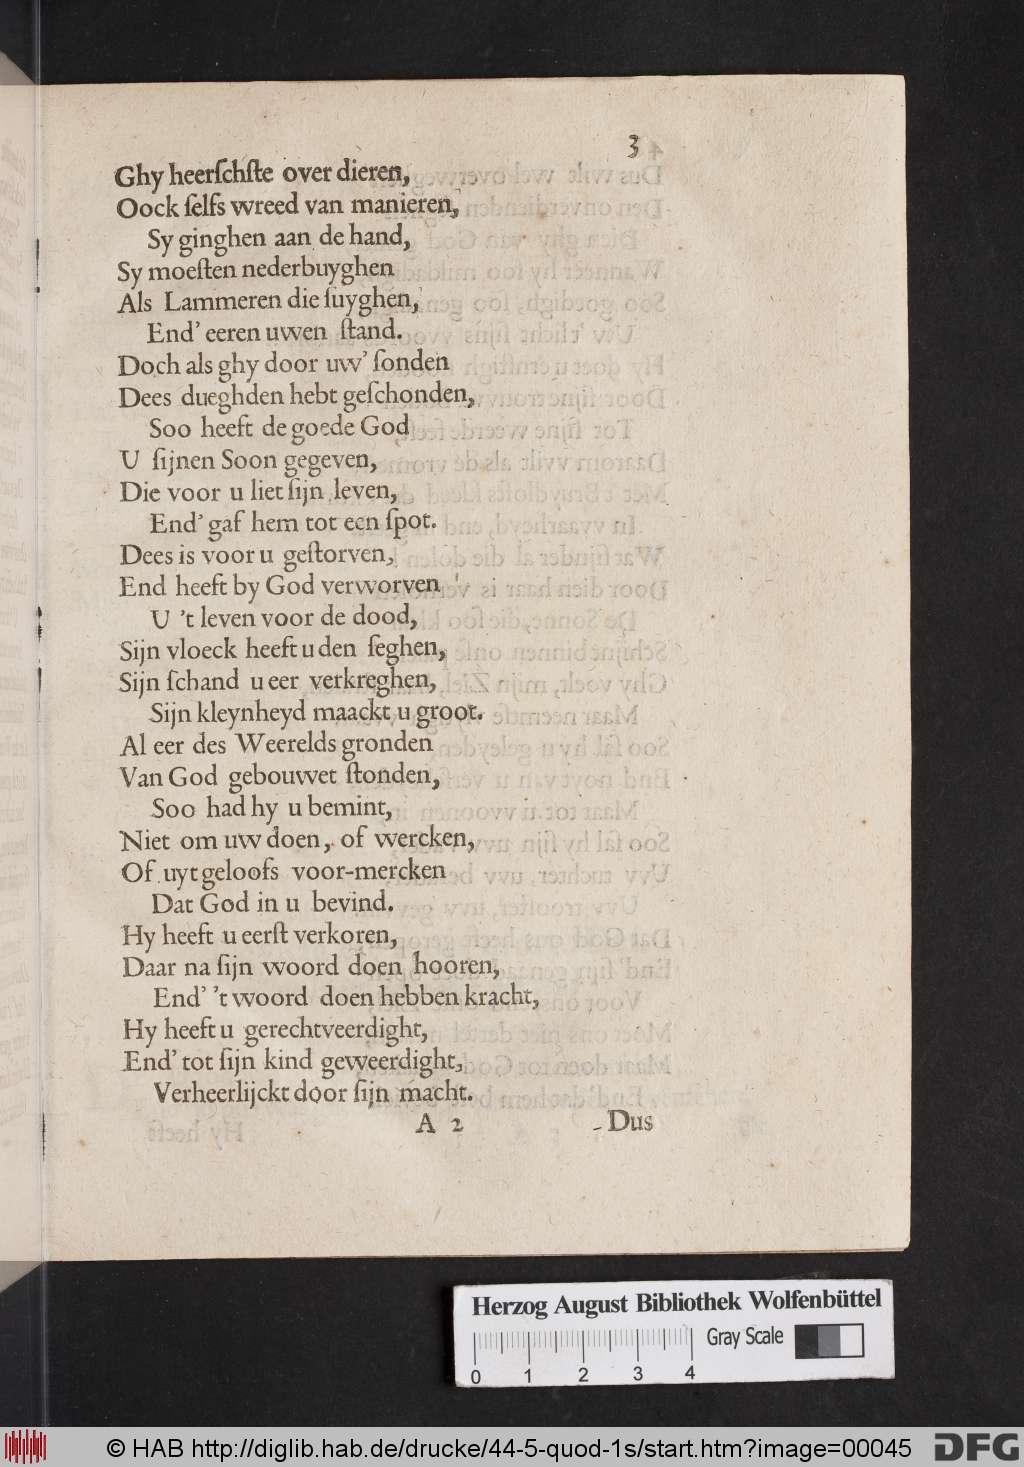 3
Ghy heerſchſte over dieren,
Oock ſelfs wreed van manieren,
Sy ginghen aan de hand,
Sy moeſten nederbuyghen
Als Lammeren die ſuyghen,
End' eeren uwen ſtand.
Doch als ghy door uw' ſonden
Dees dueghden hebt geſchonden,
Soo heeft de goede God
U ſijnen Soon gegeven,
Die voor u liet ſijn leven,
End' gaf hem tot een ſpot.
Dees is voor u geſtorven,
End heeft by God verworven
U 't leven voor de dood,
Sijn vloeck heeft u den ſeghen,
Sijn ſchand u eer verkreghen,
Sijn kleynheyd maackt u groot.
Al eer des Weerelds gronden
Van God gebouwet ſtonden,
Soo had hy u bemint,
Niet om uw doen, of wercken,
Of uyt geloofs voor-mercken
Dat God in u bevind.
Hy heeft u eerſt verkoren,
Daar na ſijn woord doen hooren,
End' 't woord doen hebben kracht,
Hy heeft u gerechtveerdight,
End' tot ſijn kind geweerdight,
Verheerlijckt door ſijn macht.
A 2 Dus
Herzog August Bibliothek Wolfenbüttel
Gray Scale
0 1 2 3 4
© HAB http://diglib.hab.de/drucke/44-5-quod-1s/start.htm?image=00045
DFG